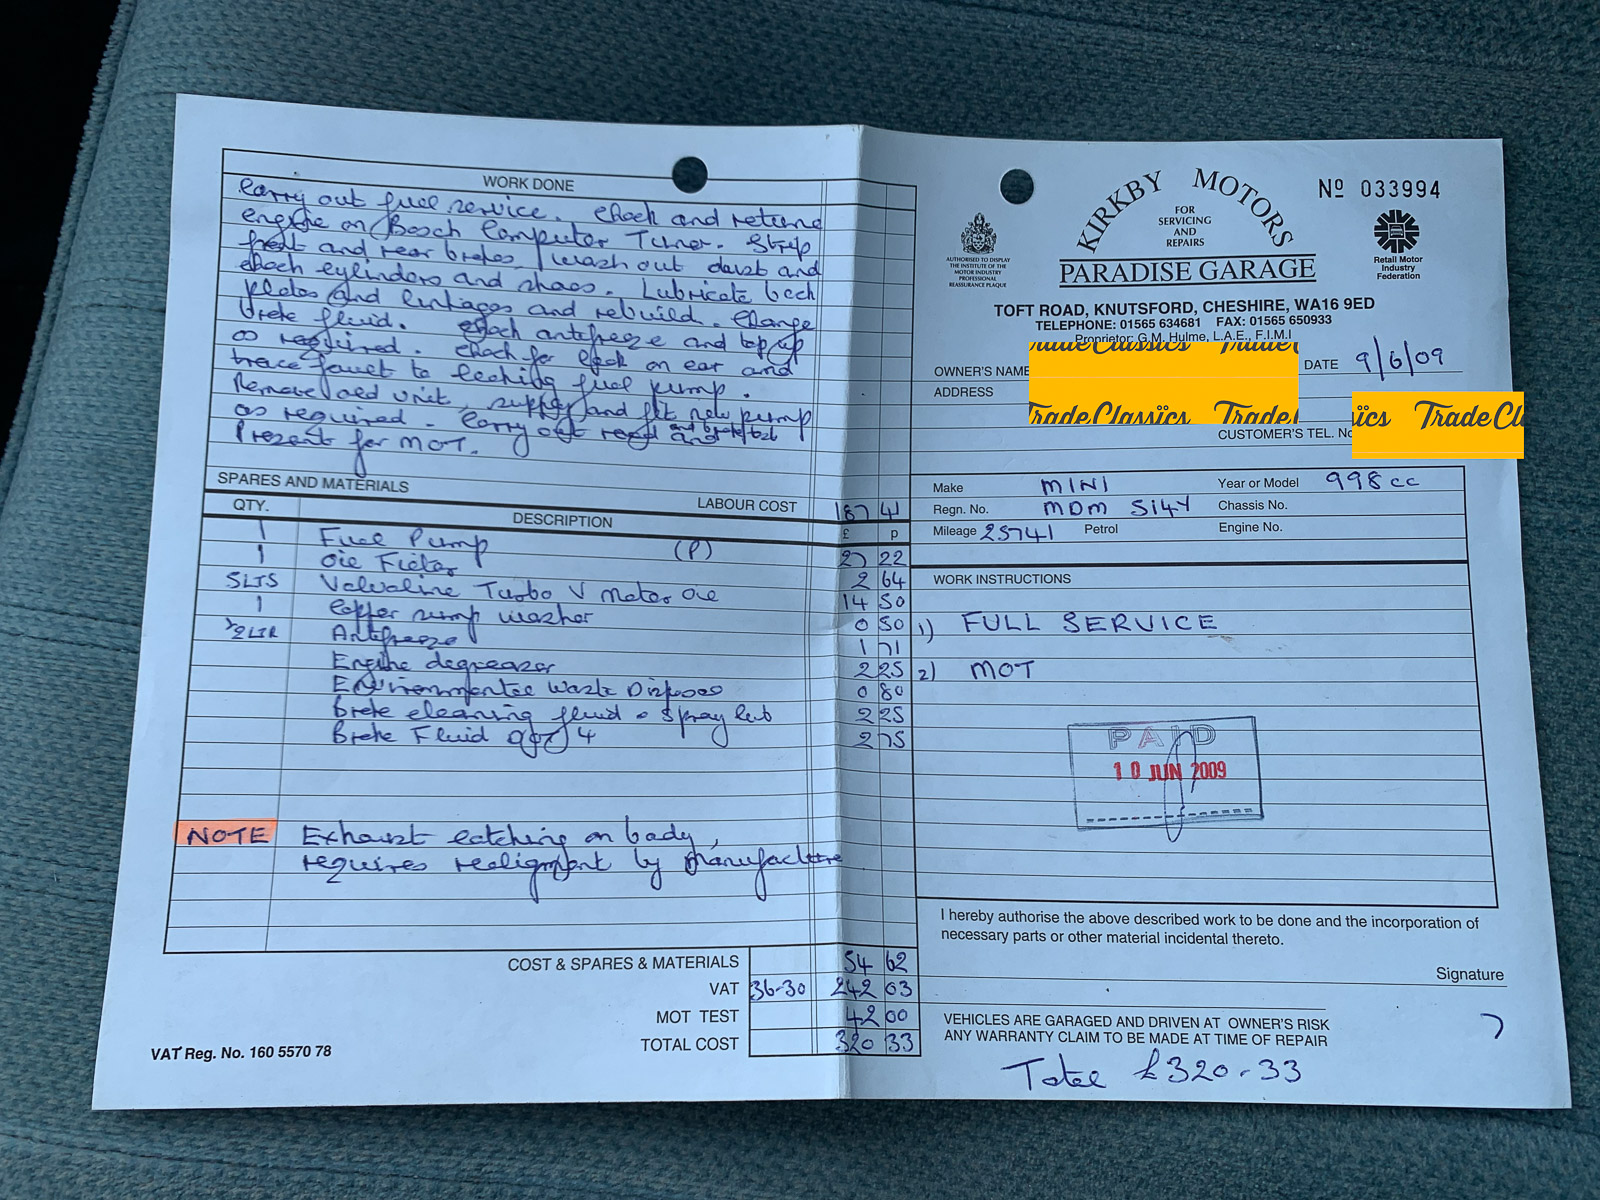 WORK DONE
Carry out full service. Check and retune
engine on Bosch Computer Tuner. Strip
front and rear brakes, wash out dust and
check cylinders and shoes. Lubricate back
plates and linkages and rebuild. Change
brake fluid. Check antifreeze and top up
as required. Check for leak on car and
trace fault to leaking fuel pump.
Remove old unit, supply and fit new pump
as required. Carry out road and brake test
Present for MOT.
SPARES AND MATERIALS
LABOUR COST 187 41
QTY. DESCRIPTION £ p
1 Fuel Pump (P) 27 22
1 Oil Filter 2 64
5LTS Valvoline Turbo V Motor Oil 14 50
1 Copper sump washer 0 50
½LTR Antifreeze 1 71
Engine degreaser 2 25
Environmental Waste Disposal 0 80
Brake cleaning fluid & spray lub 2 25
Brake Fluid 4 2 75
NOTE Exhaust catching on body,
requires realigment by manufacture
COST & SPARES & MATERIALS 54 62
VAT 36-30 242 03
MOT TEST 42 00
TOTAL COST 320 33
VAT Reg. No. 160 5570 78
Nº 033994
KIRKBY MOTORS
FOR
SERVICING
AND
REPAIRS
PARADISE GARAGE
AUTHORISED TO DISPLAY
THE INSTITUTE OF THE
MOTOR INDUSTRY
PROFESSIONAL
REASSURANCE PLAQUE
Retail Motor
Industry
Federation
TOFT ROAD, KNUTSFORD, CHESHIRE, WA16 9ED
TELEPHONE: 01565 634681 FAX: 01565 650933
Proprietor: G.M. Hulme, L.A.E., F.I.M.I
TradeClassics Trade
OWNER'S NAME DATE 9/6/09
ADDRESS
TradeClassics Trade
ics TradeCl
CUSTOMER'S TEL. No
Make MINI Year or Model 998cc
Regn. No. MDM 514Y Chassis No.
Mileage 25741 Petrol Engine No.
WORK INSTRUCTIONS
1) FULL SERVICE
2) MOT
PAID
10 JUN 2009
I hereby authorise the above described work to be done and the incorporation of
necessary parts or other material incidental thereto.
Signature
VEHICLES ARE GARAGED AND DRIVEN AT OWNER'S RISK
ANY WARRANTY CLAIM TO BE MADE AT TIME OF REPAIR
Total £320-33